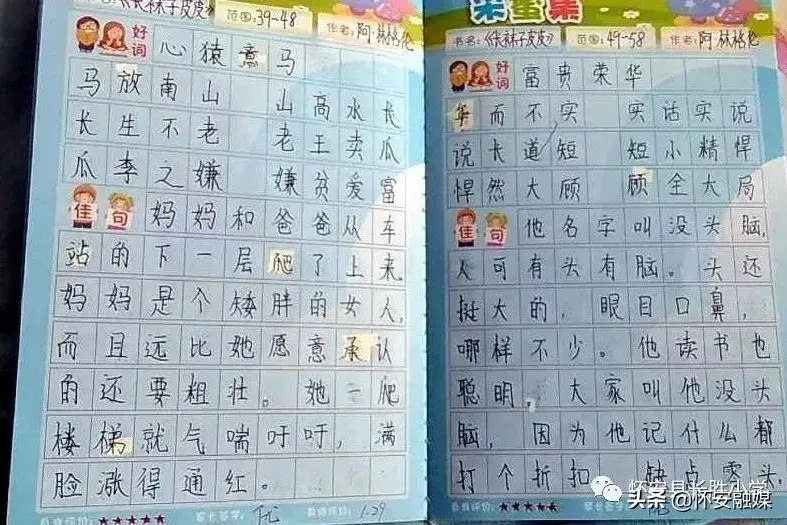 《长袜子皮皮》 范围:39-48 作者:阿·林格伦
好词 心猿意马
马放南山 山高水长
长生不老 老王卖瓜
瓜李之嫌 嫌贫爱富
佳句 妈妈和爸爸从车
站的下一层爬了上来
妈妈是个矮胖的女人,
而且远比她愿意承认
的还要粗壮。她一爬
楼梯就气喘吁吁,满
脸涨得通红。
自我评价:★★★★★ 家长签字: 优 教师评价: 1.29
采蜜集
书名:《长袜子皮皮》 范围:49-58 作者:阿·林格伦
好词 富贵荣华
华而不实 实话实说
说长道短 短小精悍
悍然大顾 顾全大局
佳句 他名字叫没头脑,
大可有头有脑。头还
挺大的,眼目口鼻,
哪样不少。他读书也
聪明 大家叫他没头
脑,因为他记什么都
打个折扣 缺点零头,
自我评价:★★★★
怀安县长胜小学
头条 @怀安融媒